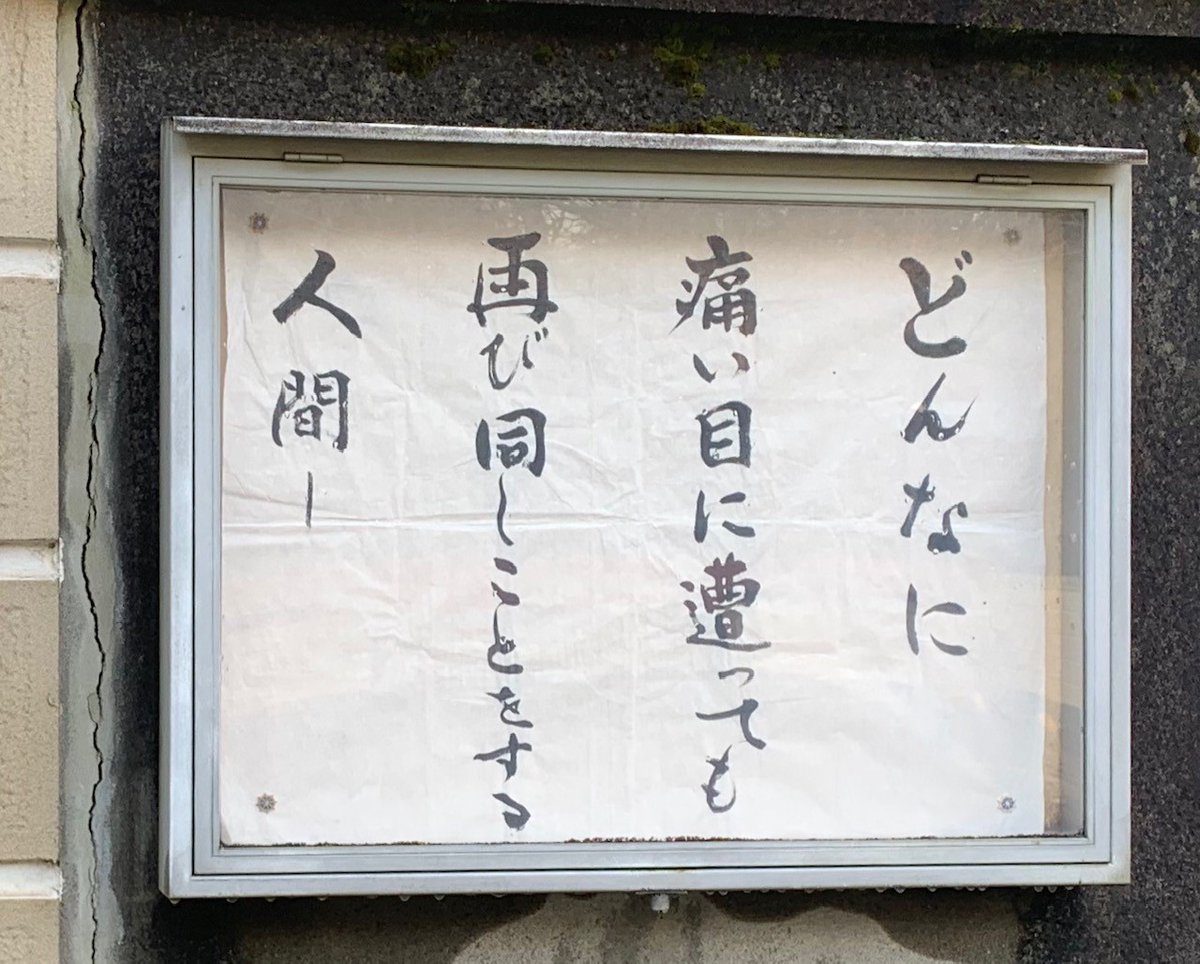 どんなに
痛い目に遭っても
再び同しことをする
人間ー